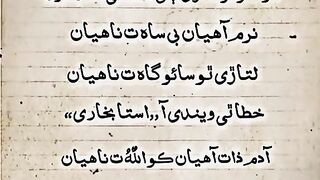 نرم آهيان بي ساھ ت ناهيان
لتاڙي ٿو سائو گاھ ت ناهيان
خطا ٿي ويندي آ ,,استا بخاري،،
آدم ذات آهيان ڪو اللهُ ت ناهيان